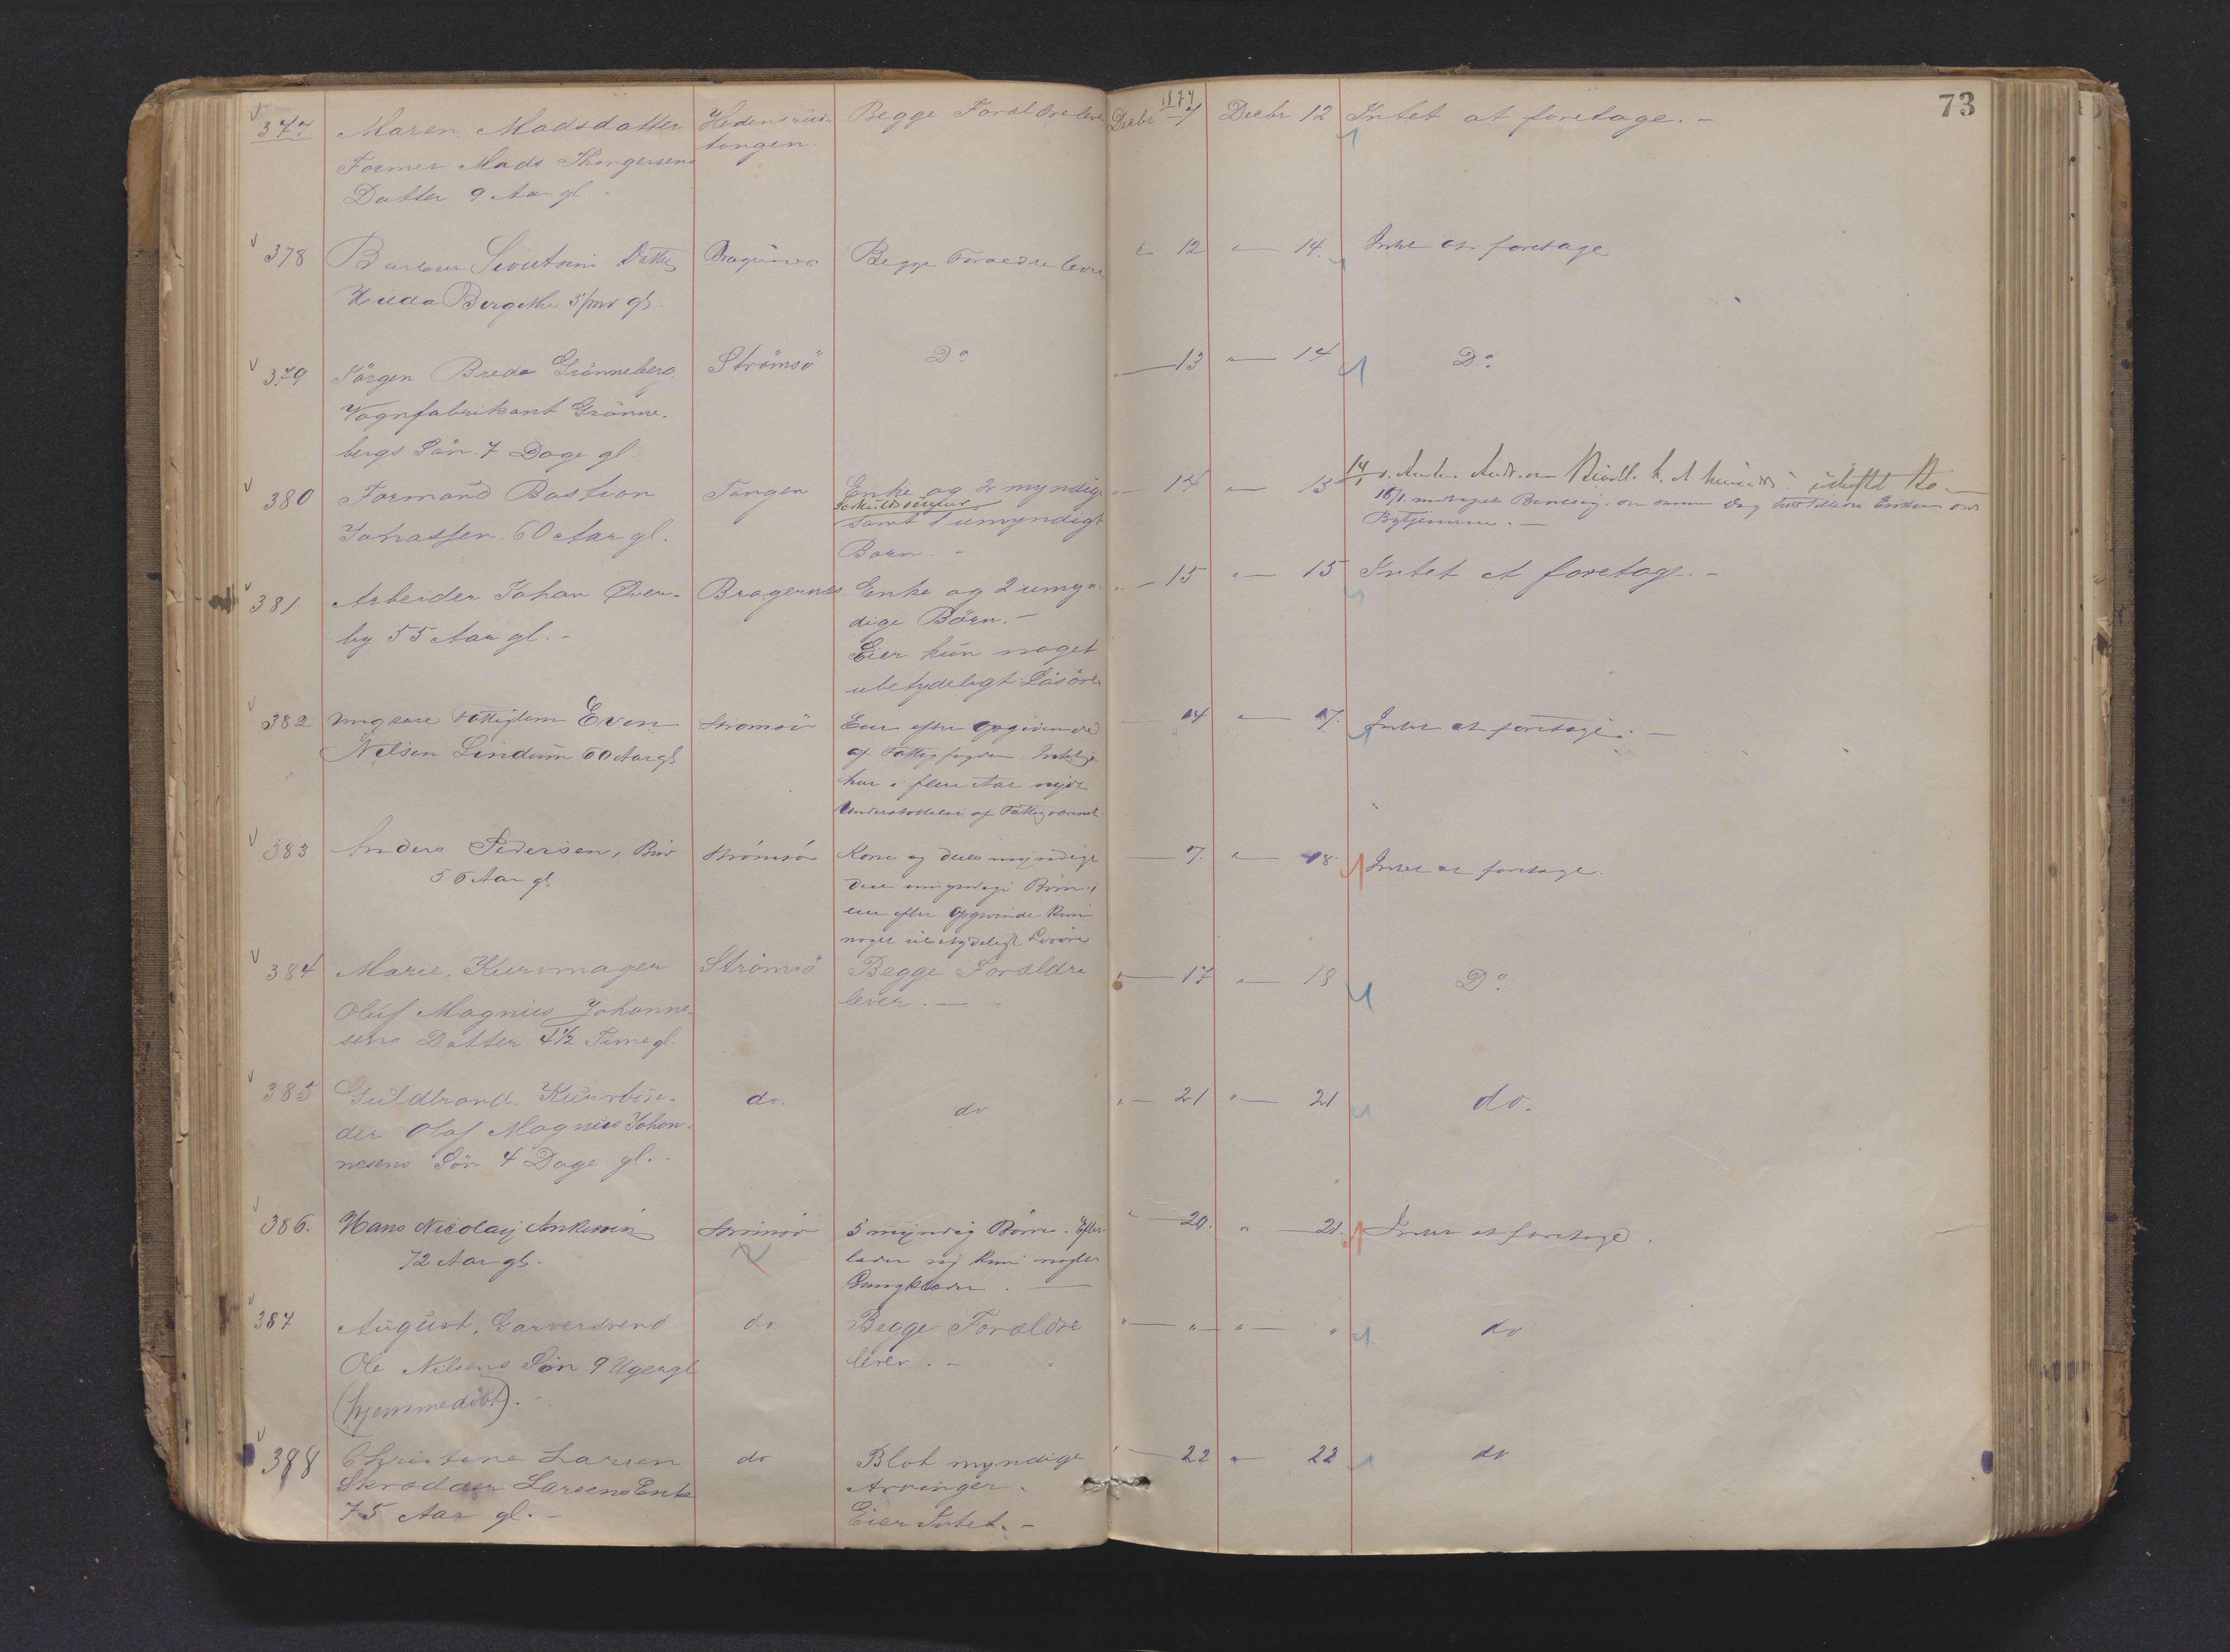 73
1877
377 Maren, Madsdatter
Former Mads Thorgersens
Datter 9 Aar gl. -
Hedensrud-
tangen.
Begge Forældre lever
Decbr 7 Decbr 12 Intet at foretage. -
378. Datter
Hilda Bergethe 3/mr gl.
Bragernes
Begge Forældre lever
" 12 " — 14. Intet at foretage
379 Jörgen Breda Grönneberg,
Vognfabrikant Grönne-
bergs Sön. 7 Dage gl.
Strömsö
Do
" — 13 " — 14 Do.
380 Formand Bastian
Jonassen. 60 Aar gl.
Tangen
Enke og 2 myndige
samt 1 umyndigt
Barn. -
" — 14 " — 15
381 Arbeider Johan Över-
by 55 Aar gl. -
Bragernes
Enke og 2 umyn-
dige Börn. -
Eier kun noget
ubetydeligt Lösöre
" — 15 " — 15 Intet at foretage. -
382 Fattiglem Even
Nilsen Lindum 60 Aar gl
Strömsö
Eier efter Opgivende
af Fattigfogden Intet,
har i flere Aar nydt
Understøttelse af Fattigvæsenet.
— 14 " — 17. Intet at foretage. —
383. Anders Pedersen,
56 Aar gl
Strömsö
Kone og deels myndige
deels umyndige Börn,
eier efter Opgivende kun
noget ubetydeligt Lösöre
— 7. " — 18 Intet at foretage.
384 Marie, Kurvmager
Oluf Magnus Johanne-
sens Datter 4 1/2 Time gl.
Strömsö
Begge Forældre
lever. —
" — 17 " — 18 Do.
385 Guldbrand, Kurvbin-
der Olaf Magnus Johan-
nesens Sön 4 Dage gl. -
do.
do
" — 21 " — 21 do.
386. Hans Nicolay
72 Aar gl.
Strömsö
5 myndig Börn. Efter-
lader sig kun nogle
Gangklæder. —
" — 20. " — 21. Intet at foretage.
387 August, Garversvend
Ole Nilsens Sön. 9 Uger gl
(hjemmedöbt). -
do
Begge Forældre
lever. -
" — " " — " do
388 Christine Larsen
Skrædder Larsens Enke
75 Aar gl. -
do
Blot myndige
Arvinger.
Eier Intet. -
" — 22 " — 22 do